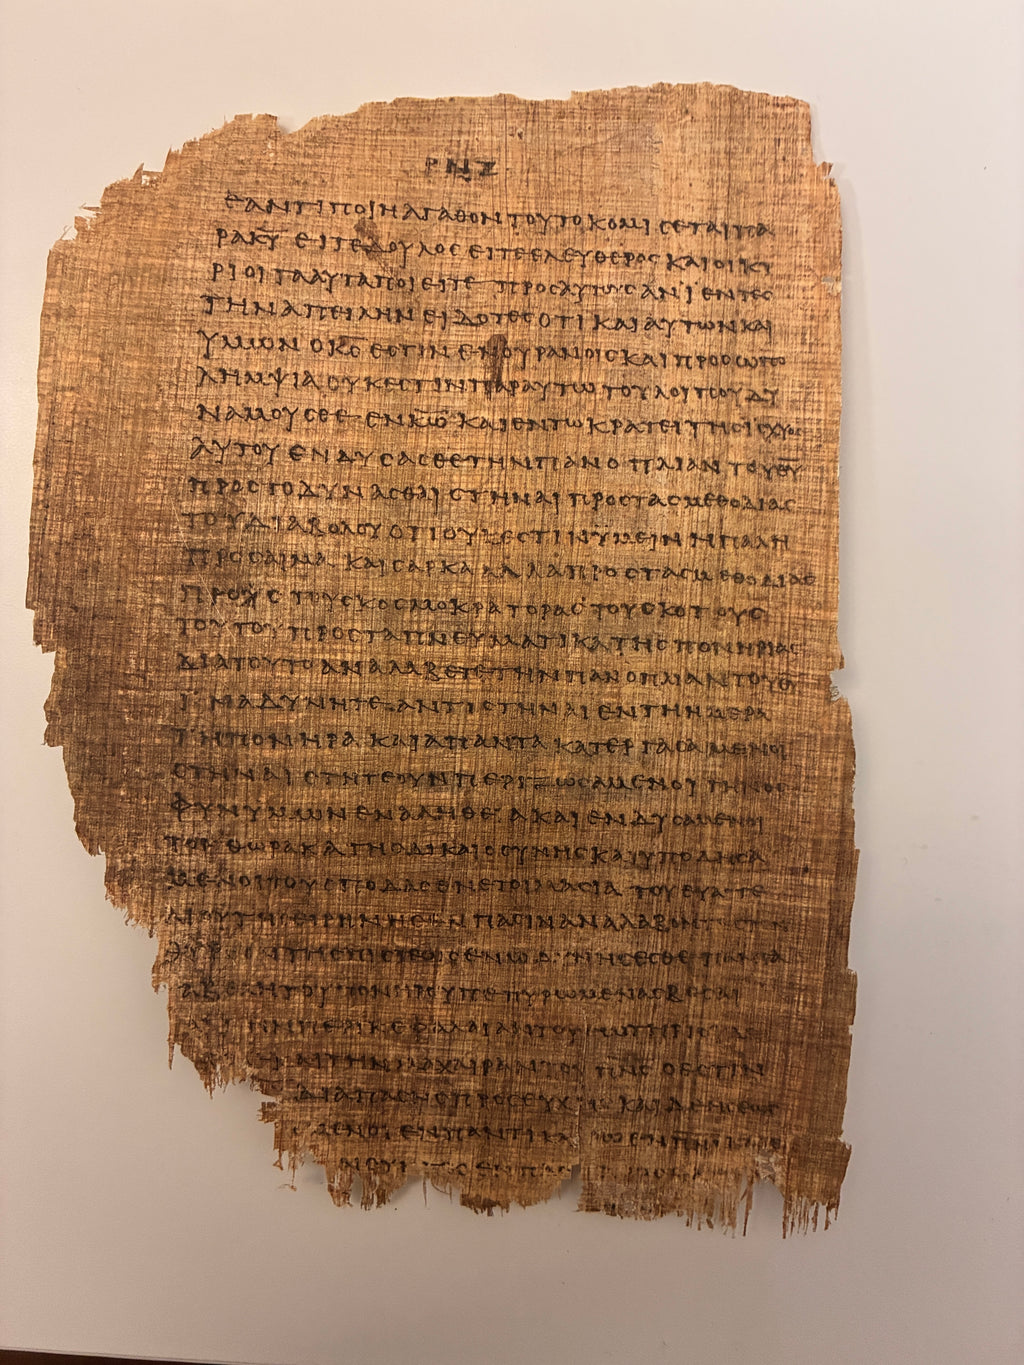 ΡΝΖ
ΕΑΝΤΙΠΟΙΗΑΓΑΘΟΝΤΟΥΤΟΚΟΜΙΣΕΤΑΙΠΑ
ΡΑΚΥ ΕΙΤΕΔΟΥΛΟΣΕΙΤΕΕΛΕΥΘΕΡΟΣΚΑΙΟΙΚΥ
ΡΙΟΙΤΑΑΥΤΑΠΟΙΕΙΤΕ ΠΡΟΣΑΥΤΟΥΣΑΝΙΕΝΤΕΣ
ΤΗΝΑΠΕΙΛΗΝΕΙΔΟΤΕΣΟΤΙΚΑΙΑΥΤΩΝΚΑΙ
ΥΜΩΝΟΚΣΕΣΤΙΝΕΝΟΥΡΑΝΟΙΣΚΑΙΠΡΟΣΩΠΟ
ΛΗΜΨΙΑΟΥΚΕΣΤΙΝΠΑΡΑΥΤΩ ΤΟΥΛΟΙΠΟΥΔΥ
ΝΑΜΟΥΣΘΕ ΕΝΚΩ ΚΑΙΕΝΤΩΚΡΑΤΕΙΤΗΣΙΣΧΥΟΣ
ΑΥΤΟΥΕΝΔΥΣΑΣΘΕΤΗΝΠΑΝΟΠΛΙΑΝΤΟΥΘΥ
ΠΡΟΣΤΟΔΥΝΑΣΘΑΙΣΤΗΝΑΙΠΡΟΣΤΑΣΜΕΘΟΔΙΑΣ
ΤΟΥΔΙΑΒΟΛΟΥΟΤΙΟΥΚΕΣΤΙΝΫΜΕΙΝΗΠΑΛΗ
ΠΡΟΣΑΙΜΑ ΚΑΙΣΑΡΚΑΑΛΛΑΠΡΟΣΤΑΣΜΕΘΟΔΙΑΣ
ΠΡΟΣ ΤΟΥΣΚΟΣΜΟΚΡΑΤΟΡΑΣΤΟΥΣΚΟΤΟΥΣ
ΤΟΥΤΟΥΠΡΟΣΤΑΠΝΕΥΜΑΤΙΚΑΤΗΣΠΟΝΗΡΙΑΣ
ΔΙΑΤΟΥΤΟΑΝΑΛΑΒΕΤΕΤΗΝΠΑΝΟΠΛΙΑΝΤΟΥΘΥ
ΙΝΑΔΥΝΗΤΕ ΑΝΤΙΣΤΗΝΑΙΕΝΤΗΗΜΕΡΑ
ΤΗΠΟΝΗΡΑ ΚΑΙΑΠΑΝΤΑ ΚΑΤΕΡΓΑΣΑΜΕΝΟΙ
ΣΤΗΝΑΙ ΣΤΗΤΕΟΥΝΠΕΡΙΖΩΣΑΜΕΝΟΙ ΤΗΝΟΣ
ΦΥΝΥΜΩΝΕΝΑΛΗΘΕΙΑΚΑΙΕΝΔΥΣΑΜΕΝΟΙ
ΤΟΝΘΩΡΑΚΑΤΗΣΔΙΚΑΙΟΣΥΝΗΣΚΑΙΥΠΟΔΗΣΑ
ΜΕΝΟΙΠΟΥΣΠΟΔΑΣΕΝΕΤΟΙΜΑΣΙΑ ΤΟΥΕΥΑΓΓΕ
ΛΙΟΥΤΗΣΕΙΡΗΝΗΣΕΝΠΑΣΙΝΑΝΑΛΑΒΟΝΤΕΣΤΟΝ
ΘΥΡΕΟΝΤΗΣΠΙΣΤΕΩΣΕΝΩΔΥΝΗΣΕΣΘΕΠΑΝΤΑ
ΤΟΥΠΟΝΗΡΟΥΠΕΠΥΡΩΜΕΝΑΣΒΕΣΑΙ
ΤΗΝΠΕΡΙΚΕΦΑΛΑΙΑΝΤΟΥΣΩΤΗΡΙΟΥ
ΤΗΝΜΑΧΑΙΡΑΝΤΟΥ ΠΝΣ ΟΕΣΤΙΝ
ΔΙΑΠΑΣΗΣΠΡΟΣΕΥΧΗΣ ΚΑΙΔΕΗΣΕΩΣ
ΜΕΝΟΙΕΝΠΑΝΤΙΚΑΙΡΩΕΝΠΝΙ
ΕΝΠΑΣ